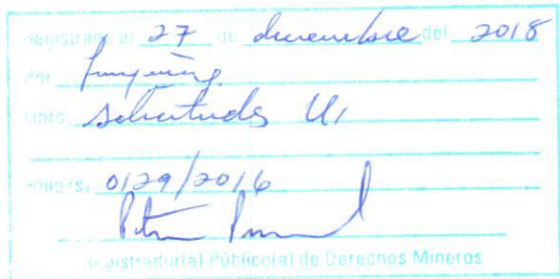 Registrado el 27 de diciembre del 2018
Por
Libro, Solicitudes VI
Folio(s), 0129/2016
Registrador(a) Público(a) de Derechos Mineros